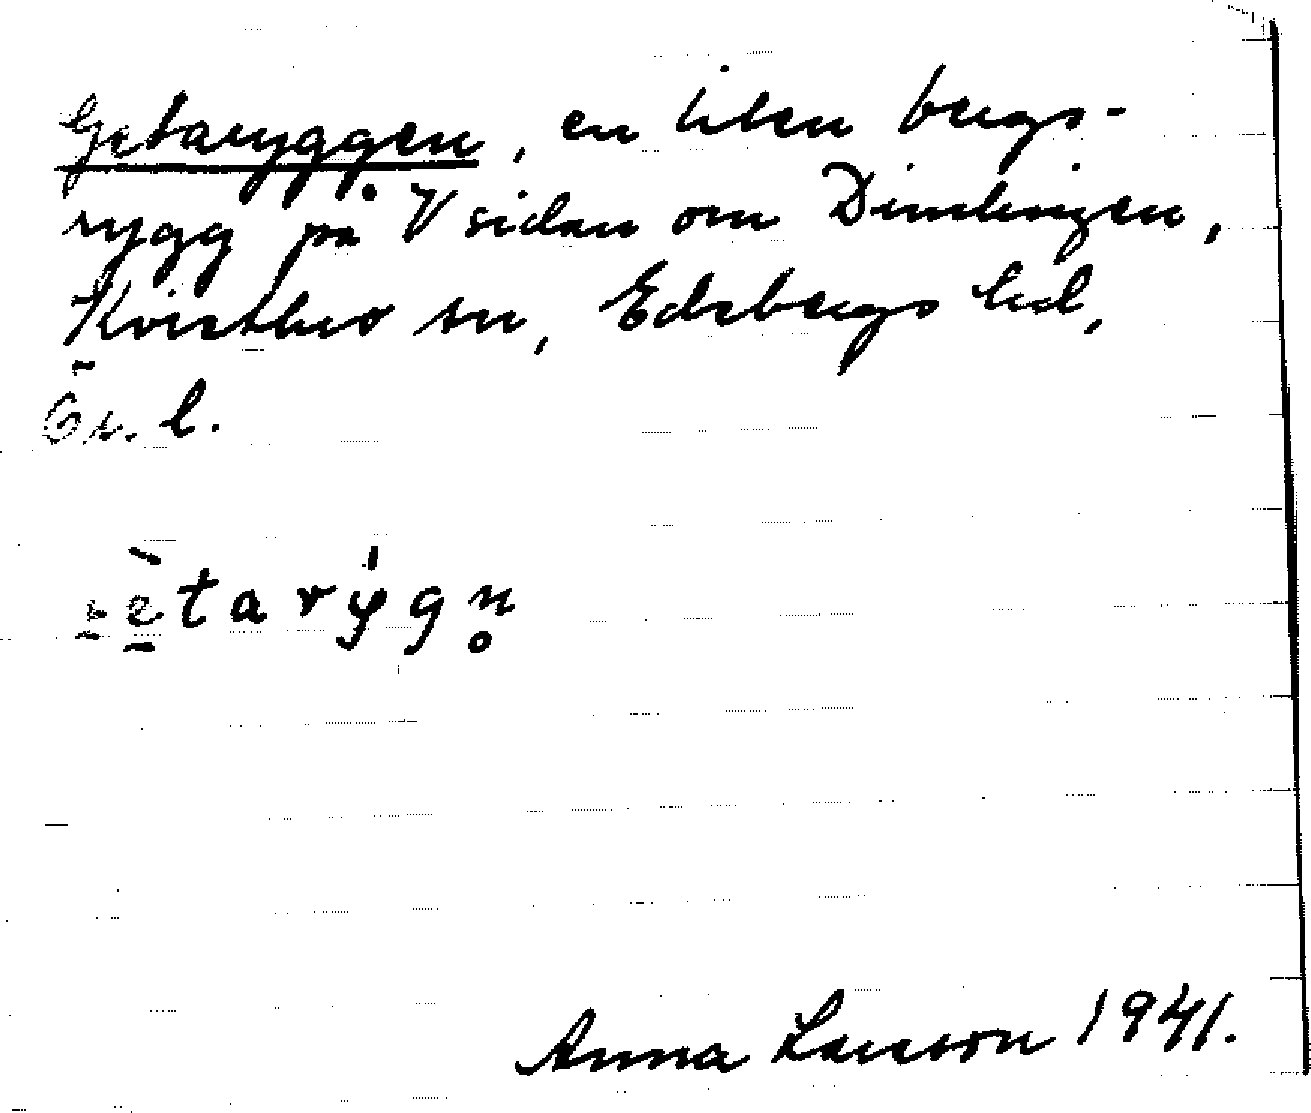 Getaryggen, en liten bergs-
rygg på V sidan om Dimlingen,
Kvistbro sn, Edsbergs hd,
Ör. l.
ètarýgn̥
Anna Larsson 1941.